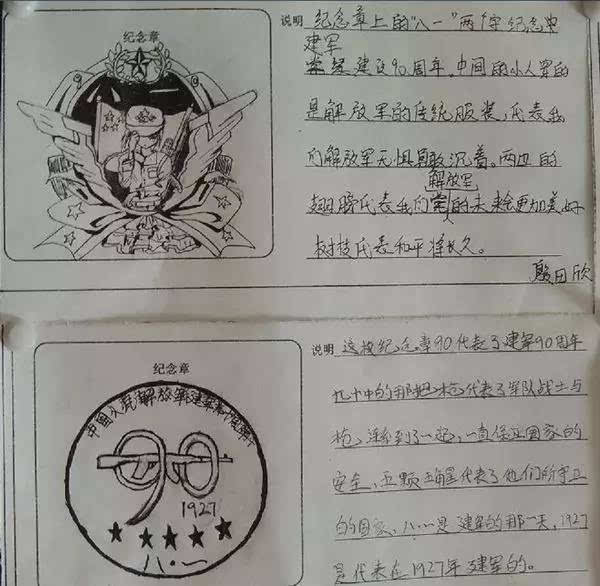 纪念章
八一
说明 纪念章上的"八一"两个字纪念中
建军
建设90周年。中间的小人穿的
是解放军的传统服装，代表我
们解放军无惧勇敢沉着。两边的
解放军
翅膀代表我们的未来会更加美好
树枝代表和平将长久。
殷田欣
纪念章
中国人民解放军建军九十周年
90
1927
八·一
说明 这枚纪念章90代表了建军90周年
九十中的那把枪代表了军队战士与
枪，连系到了一起，一直保卫国家的
安全，五颗五角星代表了他们所守卫
的国家，八.一是建军的那一天，1927
是代表在1927年建军的。